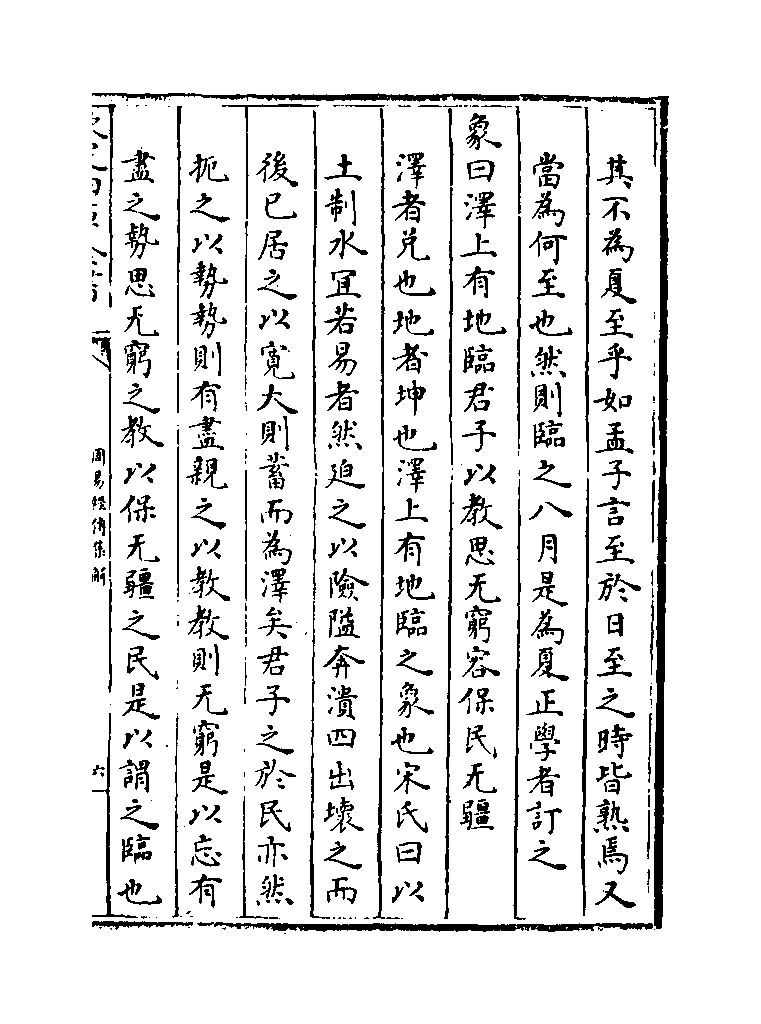 其不為夏至乎如孟子言至於日至之時皆熟焉又
當為何至也然則臨之八月是為夏正學者訂之
象曰澤上有地臨君子以教思无窮容保民无疆
澤者兑也地者坤也澤上有地臨之象也宋氏曰以
土制水宜若易者然廹之以險隘奔潰四出壞之而
後已居之以寛大則蓄而為澤矣君子之於民亦然
扼之以勢勢則有盡親之以教教則无窮是以忘有
盡之勢思无窮之教以保无疆之民是以謂之臨也
周易經傳集解
六